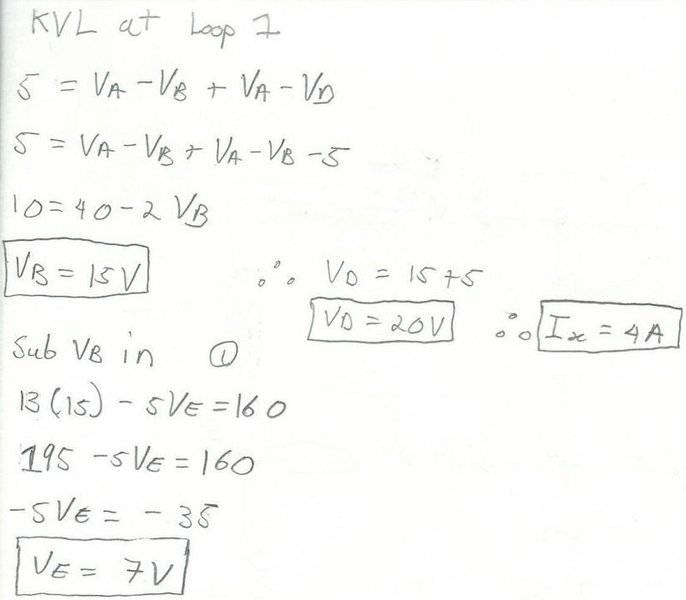 KVL at Loop 1
5 = VA - VB + VA - VD
5 = VA - VB + VA - VB - 5
10 = 40 - 2 VB
VB = 15 V
∴ VD = 15 + 5
VD = 20V ∴ Ix = 4A
Sub VB in ①
13(15) - 5VE = 160
195 - 5VE = 160
-5VE = - 35
VE = 7V